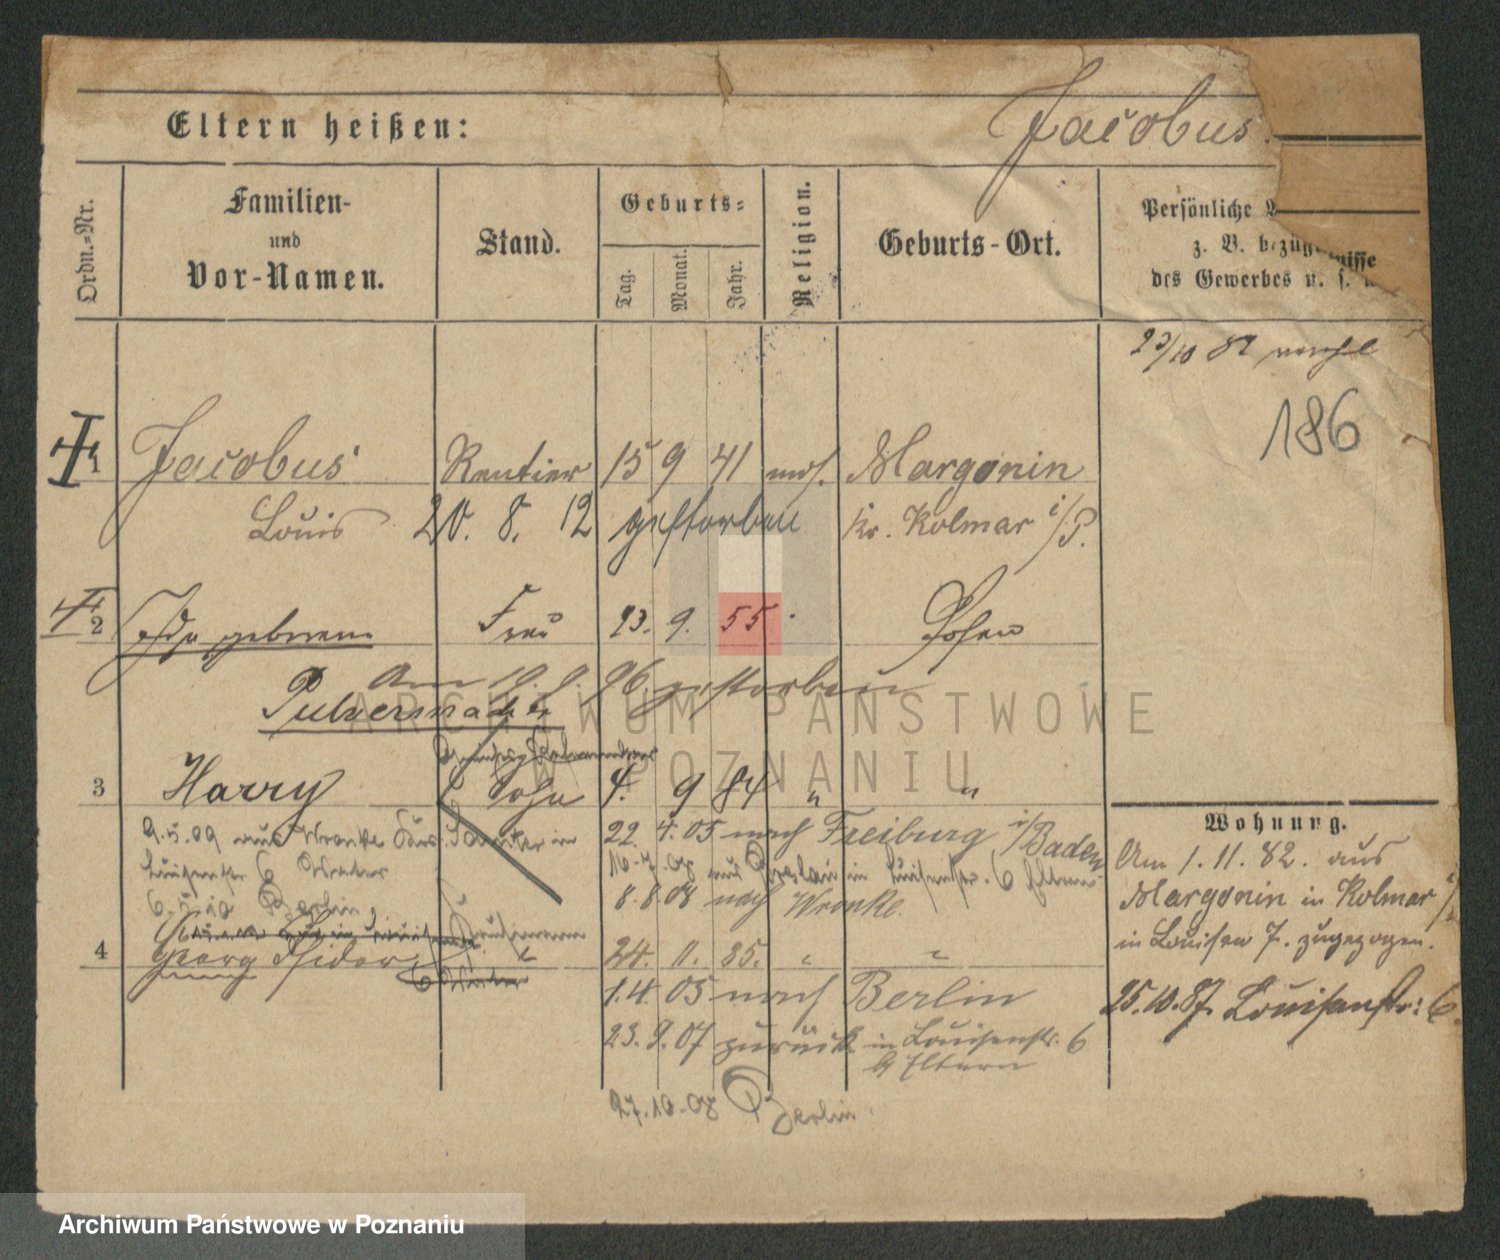 Eltern heißen: Jacobus.
Ordn.-Nr.
Familien-
und
Vor-Namen.
Stand.
Geburts-
Tag.
Monat.
Jahr.
Religion.
Geburts-Ort.
Persönliche
z. B. bezüg nisse
des Gewerbes u. s.
23/10 82
186
1 Jacobus Rentier 15 9 41 mos. Margonin
Louis 20. 8. 12 gestorben Kr. Kolmar i/P.
2 Ida geborene Frau 23. 9. 55. Posen
Am 96. gestorben
Pulvermacher
3 Harry Sohn 4. 9 84 " "
9.5.09 aus Wronke
22. 4. 05 nach Freiburg i/Baden
16.7.08 aus Breslau in Luisenstr. 6 Eltern
Luisenstr 6
8.8.08 nach Wronke.
Berlin
4 Georg Isidor 24. 11. 85. " "
1.4. 05 nach Berlin
23.9.07 zurück in Louisenstr. 6
b/ Eltern
27.10.08 Berlin.
Wohnung.
Am 1.11.82. aus
Margonin in Kolmar i/
in Louisen 7. zugezogen.
25.10.87. Louisenstr: 6.
ARCHIWUM PAŃSTWOWE
W POZNANIU
Archiwum Państwowe w Poznaniu